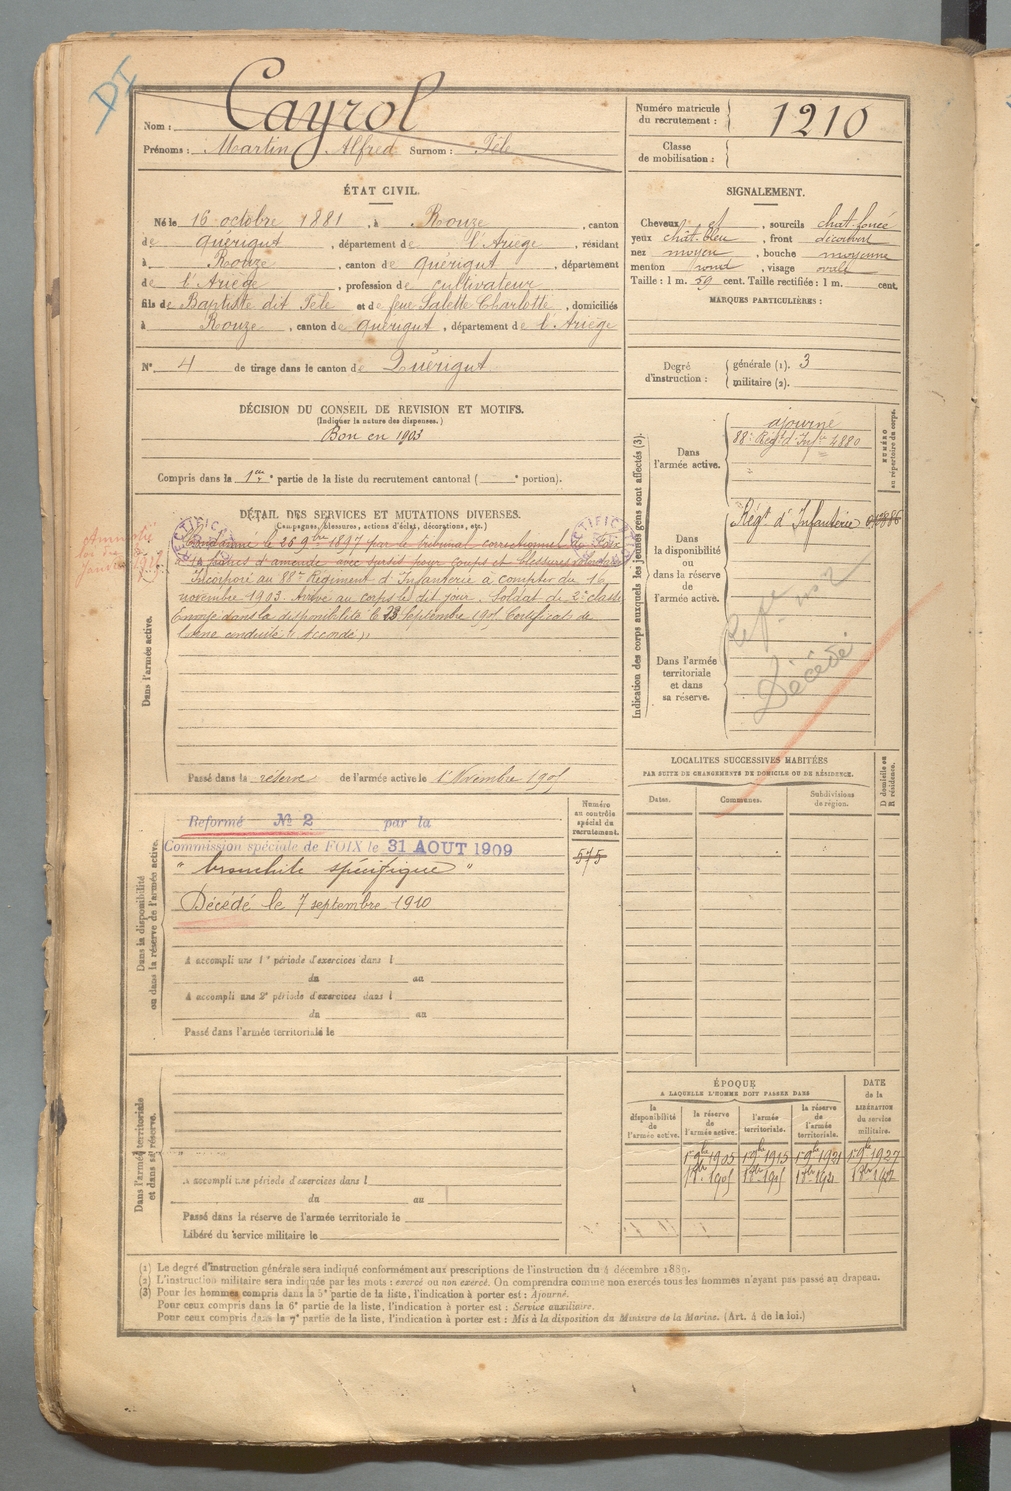 DI
Nom : Cayrol
Prénoms : Martin Alfred Surnom : Tèle
Numéro matricule du recrutement : 1210
Classe de mobilisation :
ÉTAT CIVIL.
Né le 16 octobre 1881, à Rouze, canton
de Quérigut, département de l'Ariège, résidant
à Rouze, canton de Quérigut, département
de l'Ariège, profession de cultivateur
fils de Baptiste dit Tèle et de feue Salette Charlotte, domiciliés
à Rouze, canton de Quérigut, département de l'Ariège
N° 4 de tirage dans le canton de Quérigut
SIGNALEMENT.
Cheveux et, sourcils chat. foncé
yeux chât. bleu, front découvert
nez moyen, bouche moyenne
menton rond, visage ovale
Taille : 1 m. 59 cent. Taille rectifiée : 1 m. cent.
MARQUES PARTICULIÈRES :
Degré d'instruction : générale (1). 3
militaire (2).
DÉCISION DU CONSEIL DE REVISION ET MOTIFS.
(Indiquer la nature des dispenses.)
Bon en 1903
Compris dans la 1ère partie de la liste du recrutement cantonal ( e portion).
DÉTAIL DES SERVICES ET MUTATIONS DIVERSES.
(Campagnes, blessures, actions d'éclat, décorations, etc.)
RECTIFICATION
RECTIFICATION
Amnistié
loi du
Janvier
Condamné le 25 9bre 1897 par le tribunal correctionnel de
francs d'amende avec sursis pour coups et blessures volontaires
Incorporé au 88e Régiment d'Infanterie à compter du 16
novembre 1903. Arrivé au corps le dit jour. Soldat de 2e classe
Envoyé dans la disponibilité le 23 Septembre 1905 Certificat de
bonne conduite " Accordé "
Dans l'armée active.
Passé dans la réserve de l'armée active le 1 Novembre 1905
Indication des corps auxquels les jeunes gens sont affectés (3).
NUMÉRO au répertoire du corps.
Dans l'armée active.
ajourné
88e Régt d'Infrie 4880
Dans la disponibilité ou dans la réserve de l'armée active.
Régt d'Infanterie
Réf no 2
Décédé
Dans l'armée territoriale et dans sa réserve.
LOCALITES SUCCESSIVES HABITÉES
PAR SUITE DE CHANGEMENTS DE DOMICILE OU DE RÉSIDENCE.
Dates.
Communes.
Subdivisions de région.
D domicile ou R résidence.
Dans la disponibilité ou dans la réserve de l'armée active.
Numéro au contrôle spécial du recrutement.
575
Reformé No 2 par la
Commission spéciale de FOIX le 31 AOUT 1909
" bronchite spécifique "
Décédé le 7 septembre 1910
A accompli une 1e période d'exercices dans l
du au
A accompli une 2e période d'exercices dans l
du au
Passé dans l'armée territoriale le
Dans l'armée territoriale et dans sa réserve.
A accompli une période d'exercices dans l
du au
Passé dans la réserve de l'armée territoriale le
Libéré du service militaire le
ÉPOQUE
A LAQUELLE L'HOMME DOIT PASSER DANS
la disponibilité de l'armée active.
la réserve de l'armée active.
l'armée territoriale.
la réserve de l'armée territoriale.
DATE de la LIBÉRATION du service militaire.
1er 9bre 1905 1er 9bre 1915 1er 9bre 1921 1er 9bre 1927
(1) Le degré d'instruction générale sera indiqué conformément aux prescriptions de l'instruction du 4 décembre 1889.
(2) L'instruction militaire sera indiquée par les mots : exercé ou non exercé. On comprendra comme non exercés tous les hommes n'ayant pas passé au drapeau.
(3) Pour les hommes compris dans la 5e partie de la liste, l'indication à porter est : Ajourné.
Pour ceux compris dans la 6e partie de la liste, l'indication à porter est : Service auxiliaire.
Pour ceux compris dans la 7e partie de la liste, l'indication à porter est : Mis à la disposition du Ministre de la Marine. (Art. 4 de la loi.)